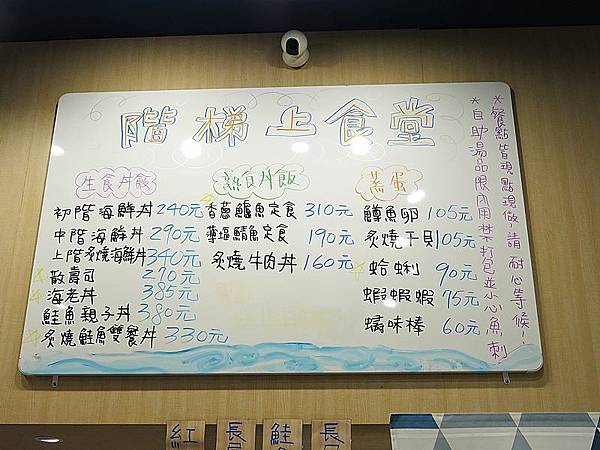 階梯上食堂
生食丼飯
初階海鮮丼 240元
中階海鮮丼 290元
上階炙燒海鮮丼 340元
散壽司 270元
海老丼 385元
鮭魚親子丼 380元
炙燒鮭魚雙饗丼 330元
熟食丼飯
香蔥鱸魚定食 310元
華逼鯖魚定食 190元
炙燒牛肉丼 160元
蒸蛋
鱒魚卵 105元
炙燒干貝 105元
蛤蜊 90元
蝦蝦蝦 75元
蟳味棒 60元
*餐點皆現點現做!請耐心等候!
*自助湯品限內用禁打包並小心魚刺
紅
長
鮭
長